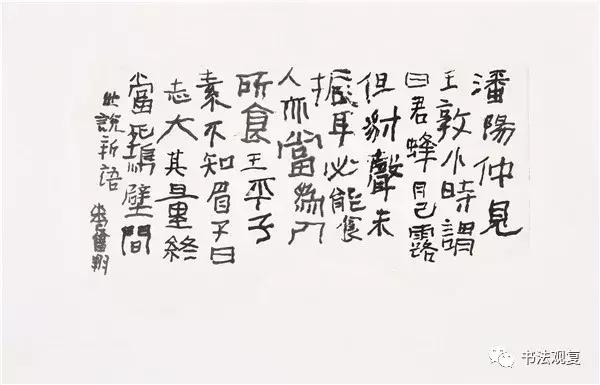 潘陽仲見
王敦小時謂
曰君蜂目已露
但豺聲未
振耳必能食
人亦當為人
所食王平子
素不知眉子曰
志大其量終
當死塢壁間
世說新語
书法观复